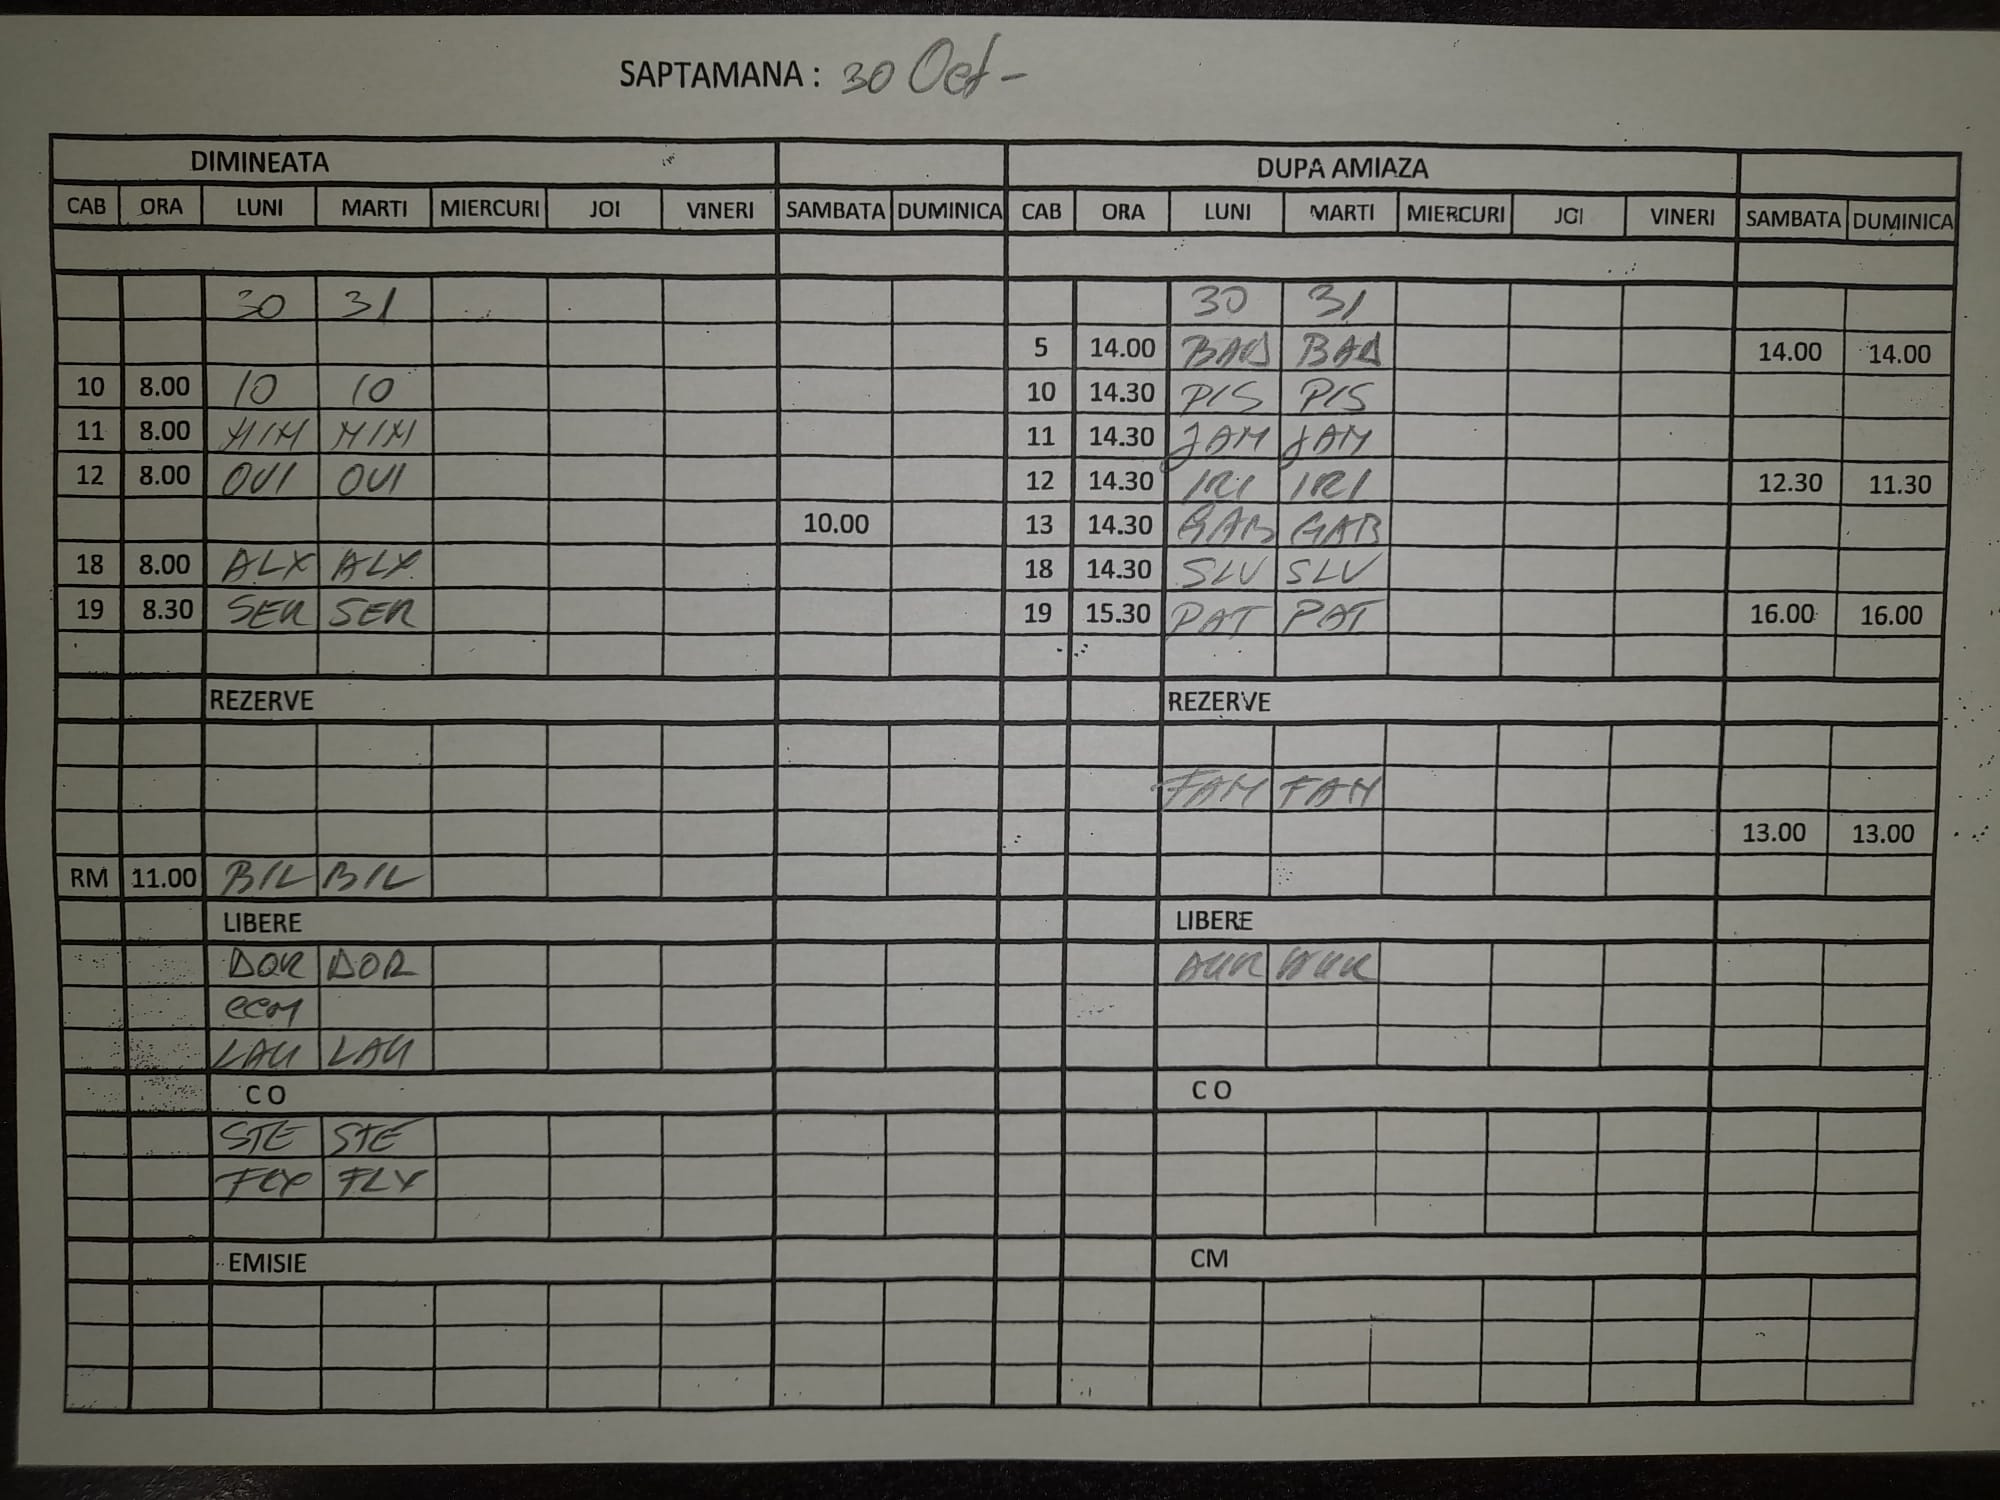 SAPTAMANA : 30 Oct -
DIMINEATA DUPA AMIAZA
CAB ORA LUNI MARTI MIERCURI JOI VINERI SAMBATA DUMINICA CAB ORA LUNI MARTI MIERCURI JOI VINERI SAMBATA DUMINICA
30 31 30 31
5 14.00 BAD BAD 14.00 14.00
10 8.00 10 10 10 14.30 PIS PIS
11 8.00 MIH MIH 11 14.30 JAM JAM
12 8.00 OVI OVI 12 14.30 IRI IRI 12.30 11.30
10.00 13 14.30 GAB GAB
18 8.00 ALX ALX 18 14.30 SLV SLV
19 8.30 SER SER 19 15.30 PAT PAT 16.00 16.00
REZERVE REZERVE
FAM FAM
13.00 13.00
RM 11.00 BIL BIL
LIBERE LIBERE
DOR DOR AUR AUR
LAU LAU
C O C O
STE STE
FLX
EMISIE CM